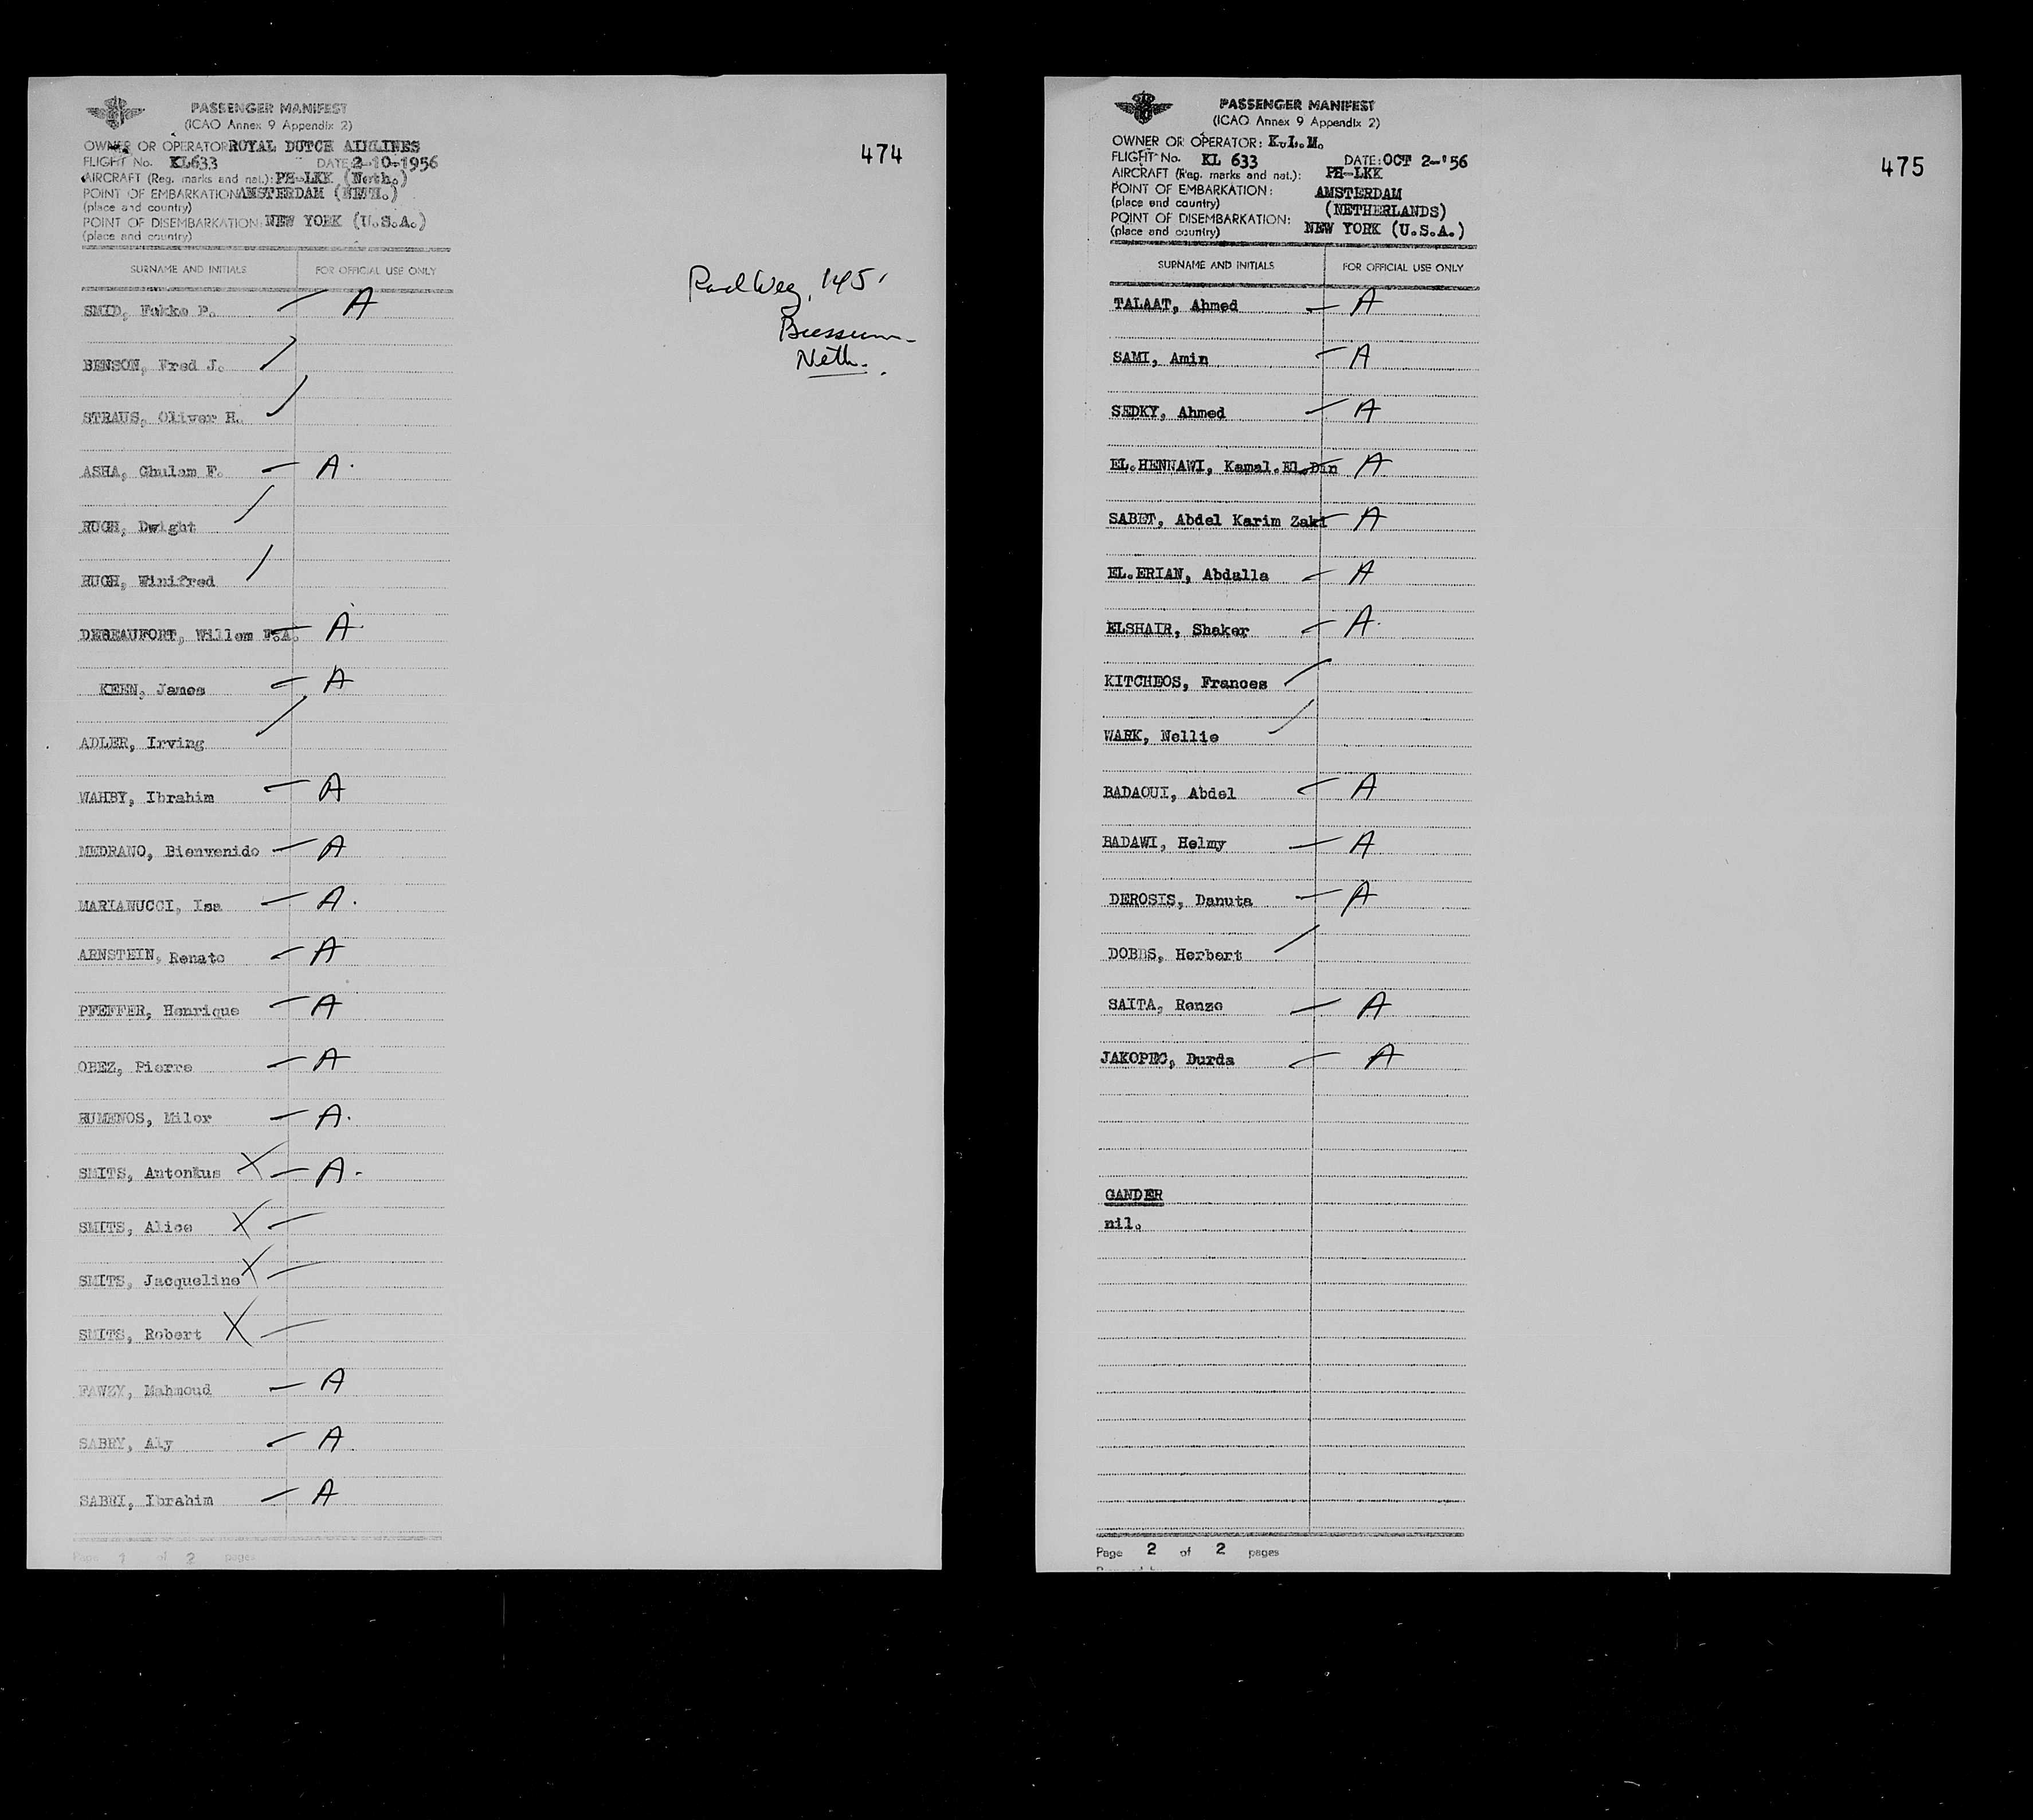 PASSENGER MANIFEST
(ICAO Annex 9 Appendix 2)
OWNER OR OPERATOR ROYAL DUTCH AIRLINES
FLIGHT No. KL633 DATE: 2-10-1956
AIRCRAFT (Reg. marks and nat.): PH-LKK (Neth.)
POINT OF EMBARKATION AMSTERDAM (NETH.)
(place and country)
POINT OF DISEMBARKATION: NEW YORK (U.S.A.)
(place and country)
474
SURNAME AND INITIALS FOR OFFICIAL USE ONLY
145
Bussum
Neth.
SMID, Fokko P. A
BENSON, Fred J.
STRAUS, Oliver H.
ASHA, Ghulam F. A.
RUGH, Dwight
RUGH, Winifred
DEBEAUFORT, Willem F.A. A
KEEN, James A
ADLER, Irving
WAHBY, Ibrahim A
MEDRANO, Bienvenido A
MARIANUCCI, Isa A.
ARNSTEIN, Renato A
PFEFFER, Henrique A
OBEZ, Pierre A
HUMENOS, Milor A.
SMITS, Antonius X A.
SMITS, Alice X
SMITS, Jacqueline X
SMITS, Robert X
FAWZY, Mahmoud A
SABRY, Aly A
SABRI, Ibrahim A
Page 1 of 2 pages
PASSENGER MANIFEST
(ICAO Annex 9 Appendix 2)
OWNER OR OPERATOR: K.L.M.
FLIGHT No. KL 633 DATE: OCT 2-'56
AIRCRAFT (Reg. marks and nat.): PH-LKK
POINT OF EMBARKATION: AMSTERDAM
(place and country) (NETHERLANDS)
POINT OF DISEMBARKATION: NEW YORK (U.S.A.)
(place and country)
475
SURNAME AND INITIALS FOR OFFICIAL USE ONLY
TALAAT, Ahmed A
SAMI, Amin A
SEDKY, Ahmed A
EL.HENNAWI, Kamal.El.Din A
SABET, Abdel Karim Zaki A
EL.ERIAN, Abdalla A
ELSHAIR, Shaker A.
KITCHEOS, Frances
WARK, Nellie
BADAOUI, Abdel A
BADAWI, Helmy A
DEROSIS, Danuta A
DOBBS, Herbert
SAITA, Renzo A
JAKOPEC, Durda A
GANDER
nil.
Page 2 of 2 pages